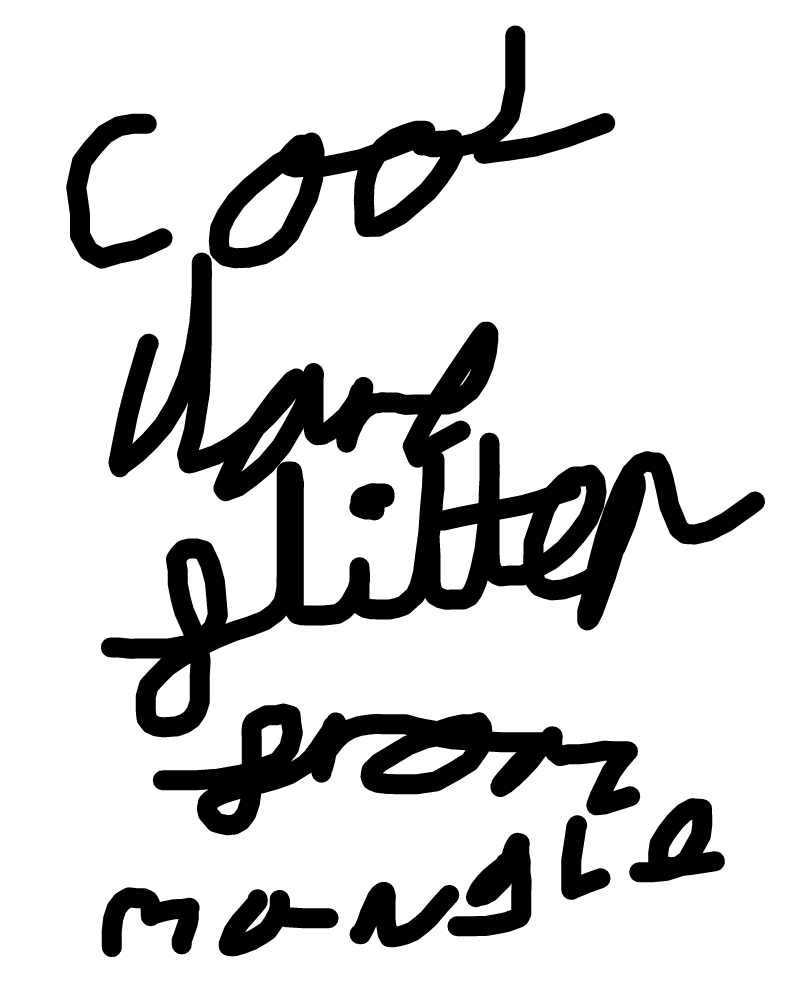 Cool
Hare
flitter
from
mangle